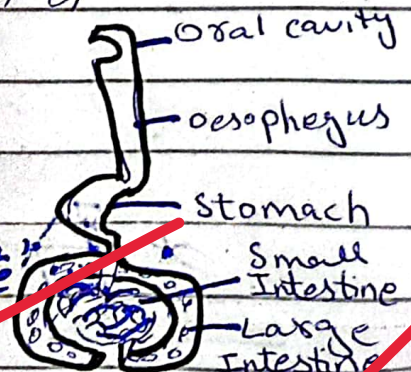 Oral cavity
oesophegus
Stomach
Small
Intestine
Large
Intestine